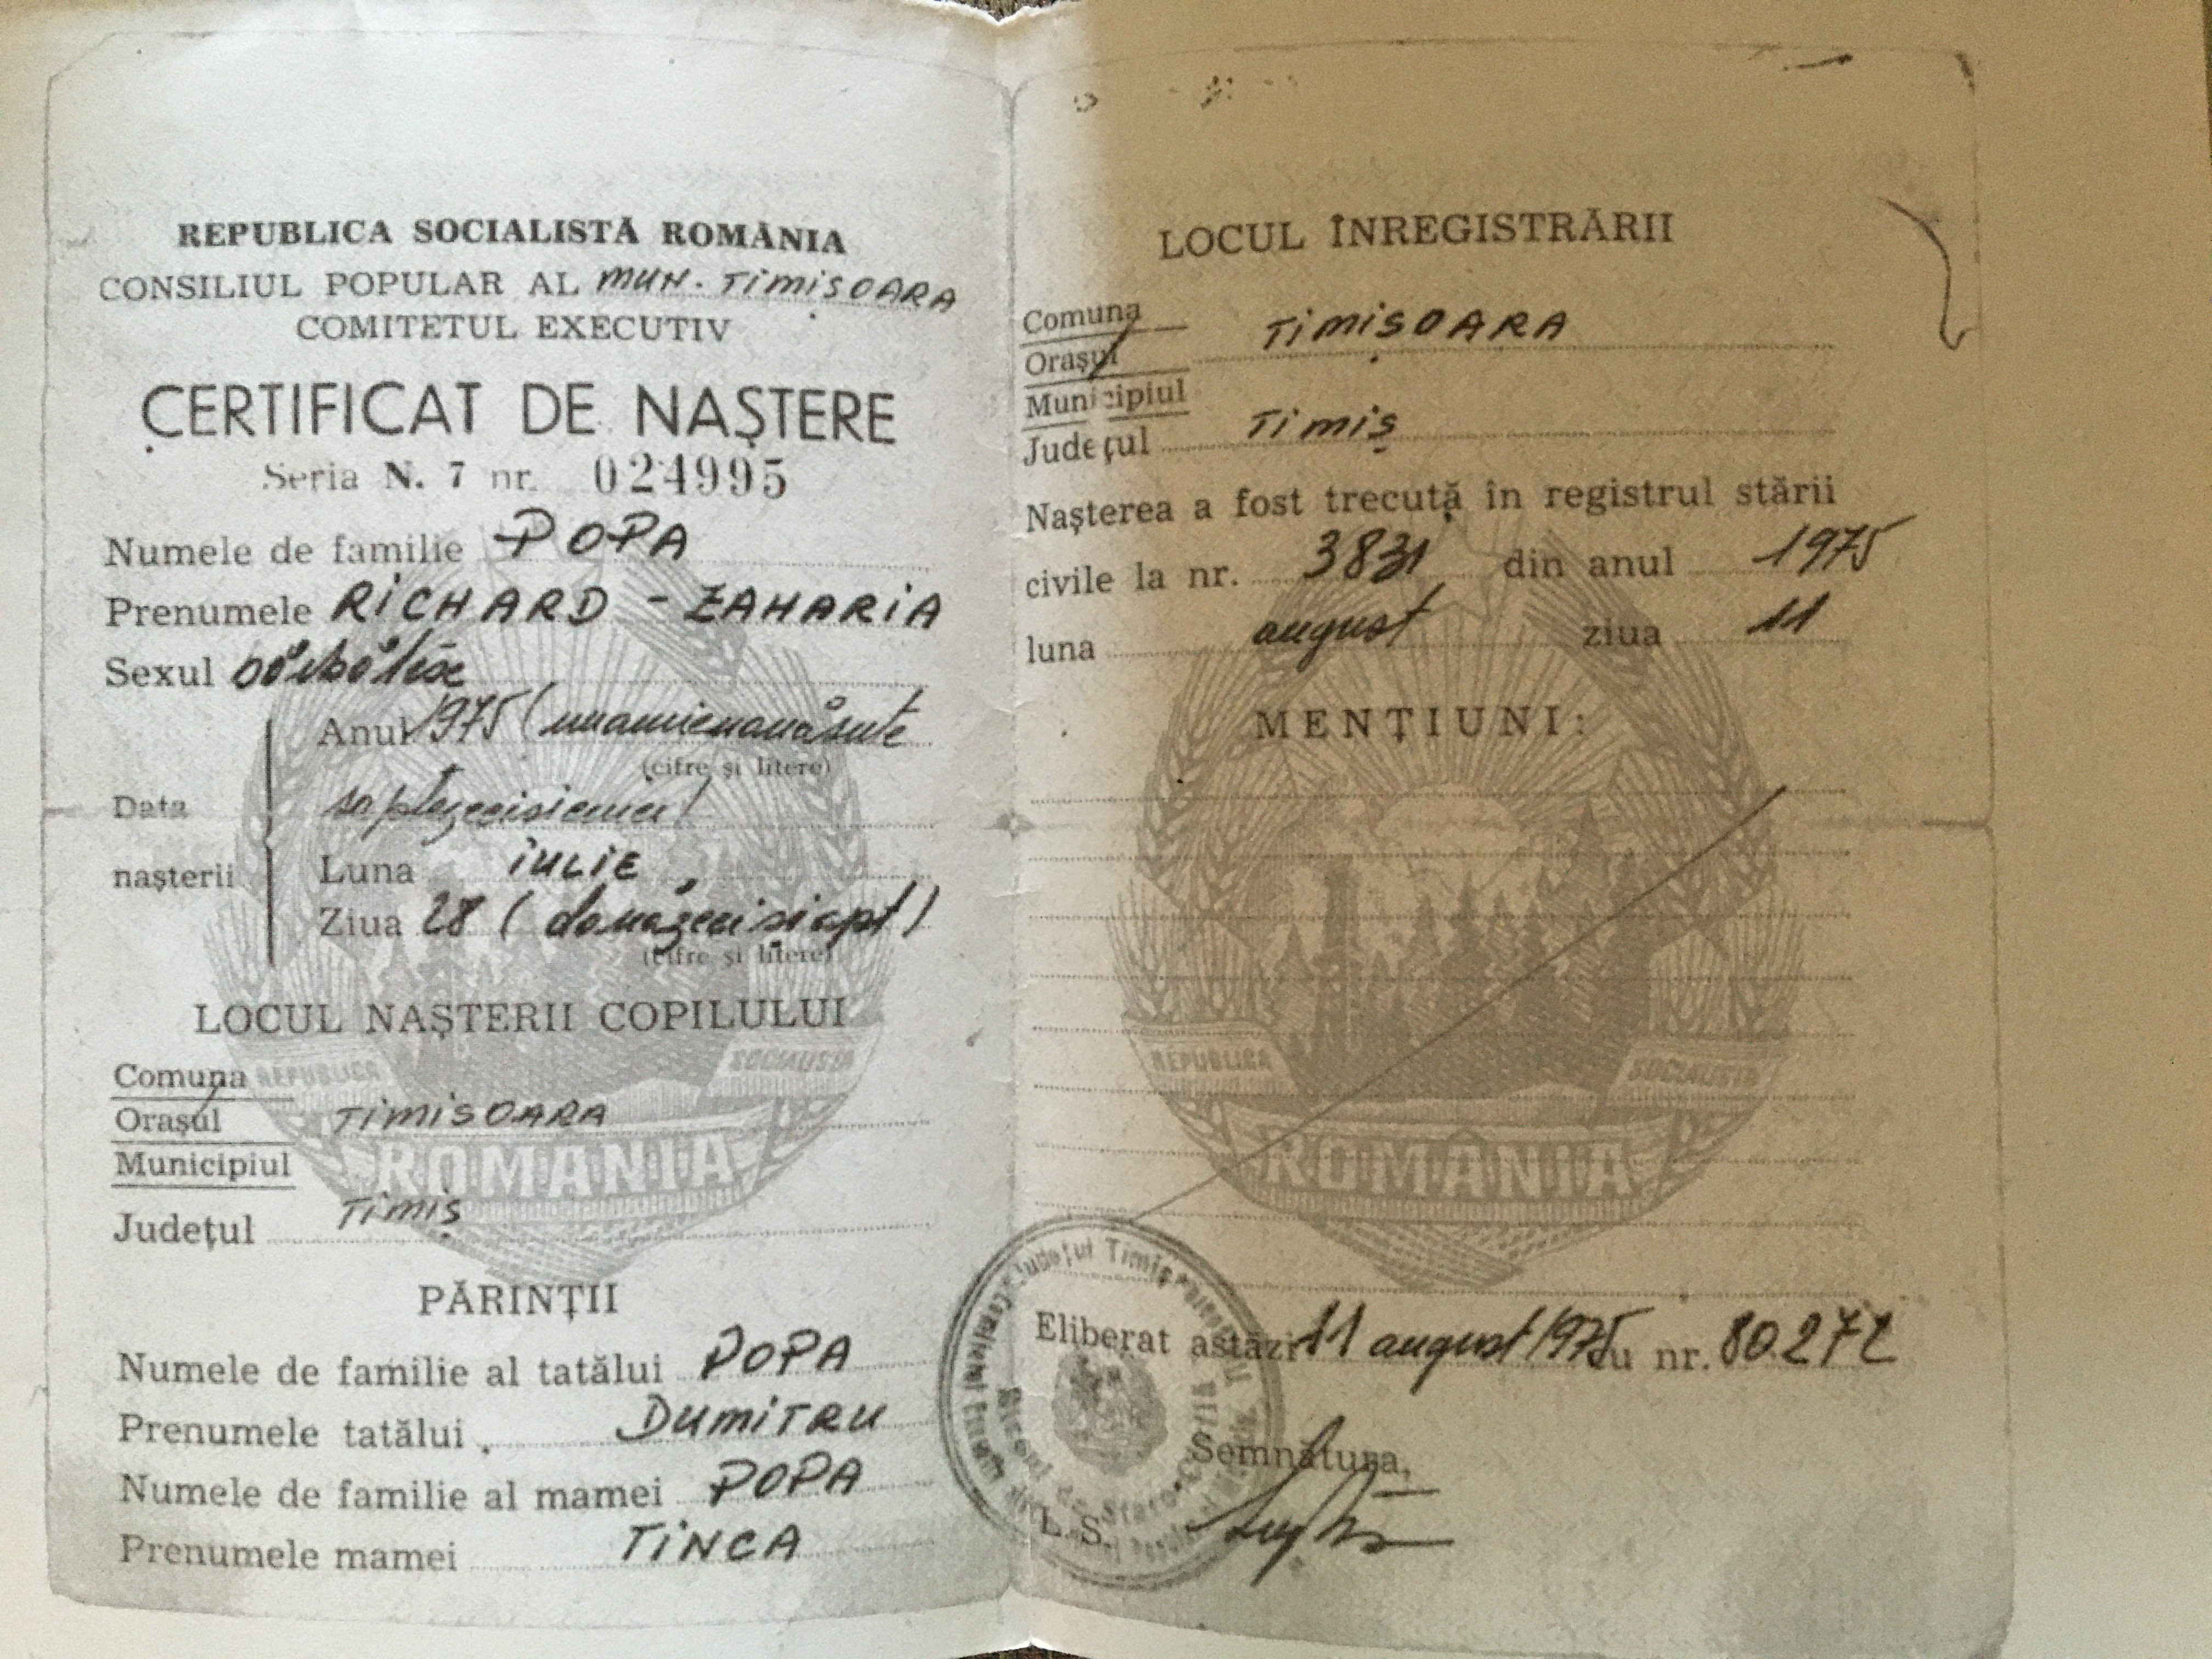 REPUBLICA SOCIALISTĂ ROMÂNIA
CONSILIUL POPULAR AL MUN. TIMIȘOARA
COMITETUL EXECUTIV
CERTIFICAT DE NAȘTERE
Seria N. 7 nr. 024995
Numele de familie POPA
Prenumele RICHARD - ZAHARIA
Sexul bărbătesc
Anul 1975 (unamienouăsute
(cifre și litere)
Data
șaptezecișicinci)
nașterii
Luna IULIE,
Ziua 28 (douăzecișiopt)
(cifre și litere)
LOCUL NAȘTERII COPILULUI
Comuna
Orașul TIMISOARA
Municipiul
Județul TIMIȘ
REPUBLICA SOCIALISTA
ROMANIA
PĂRINȚII
Numele de familie al tatălui POPA
Prenumele tatălui DUMITRU
Numele de familie al mamei POPA
Prenumele mamei TINCA
LOCUL ÎNREGISTRĂRII
Comuna
Orașul TIMIȘOARA
Municipiul
Județul TIMIȘ
Nașterea a fost trecută în registrul stării
civile la nr. 3831 din anul 1975
luna august ziua 11
MENȚIUNI:
REPUBLICA SOCIALISTA
ROMÂNIA
Județul Timiș
Eliberat astăzi 11 august 1975 cu nr. 80272
Semnătura,
L. S.